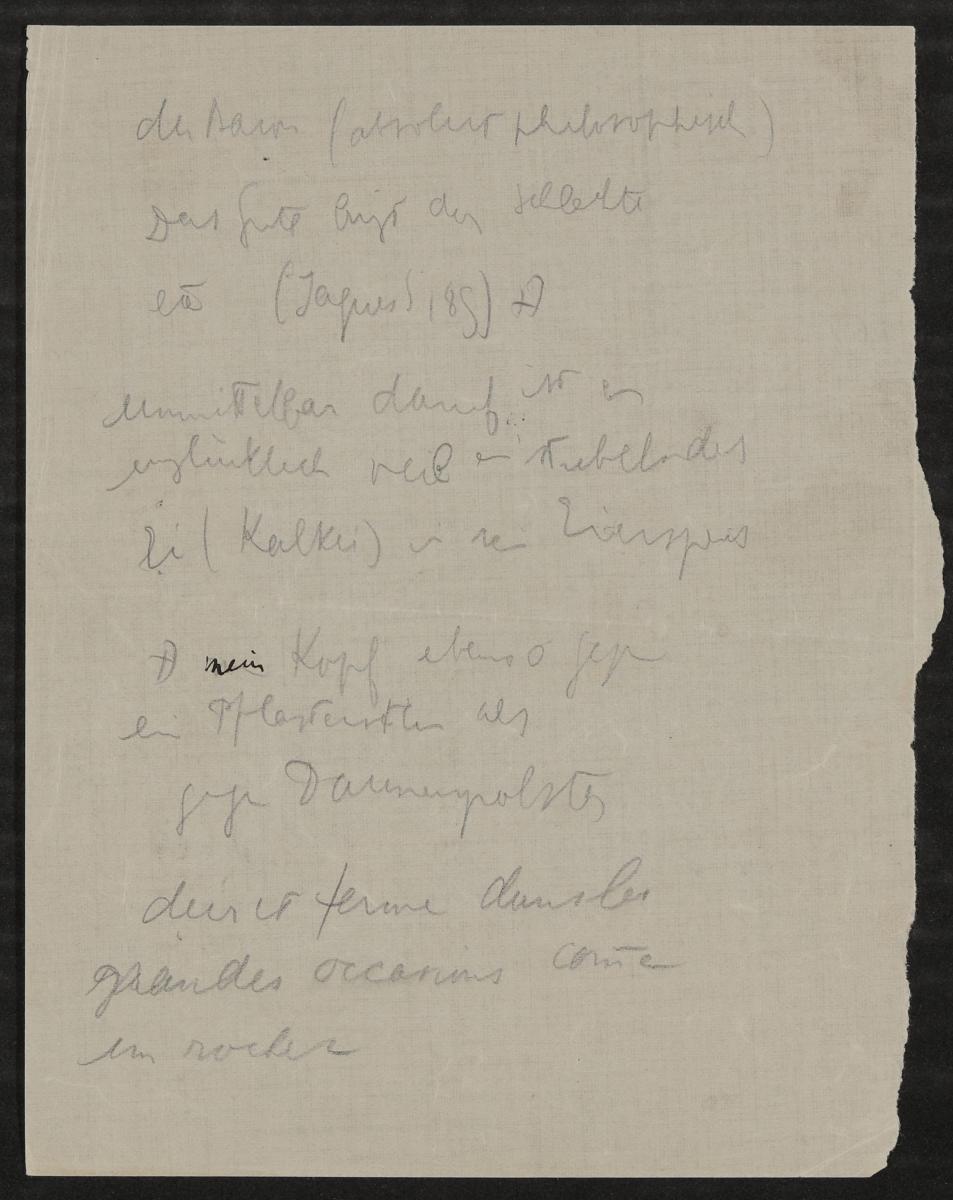 der Baron (absolut philosophisch)
Das Gute liegt der Schlechte
(Jaques 189) A
unmittelbar darauf ist er
unglücklich weil ein
Ei (Kalkei) in
A mein Kopf ebenso gegen
ein Pflasterstein als
gegen Daunenpolster
dur et ferme dans les
grandes occasions com̄e
un rocher